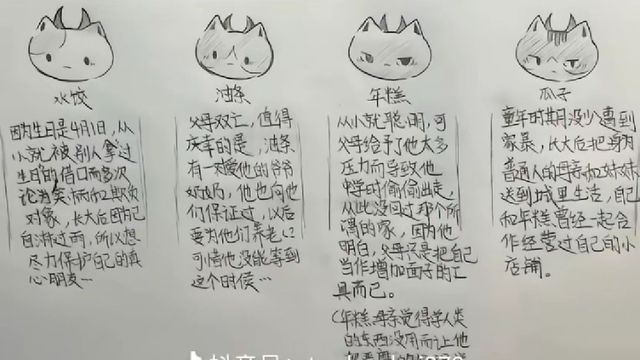 水饺
因为生日是4月1日,从
小就被别人拿过
生日的借口而多次
论为笑柄和欺负
对象,长大后因为自己
自渐过两,所以想
尽力保护自己的真
心朋友…
油条
父母双亡,值得
庆幸的是,油条
有一对爱他的爷爷
奶奶,他也向他
们保证过,以后
要为他们养老,
可惜他没能等到
这个时候…
年糕
从小就聪明,可
父母给予了他太多
压力而导致他
中学时偷偷出走,
从此没回过那个所
谓的家,因为他
明白,父母只是把自己
当作增加面子的工
具而已。
(年糕母亲觉得学人类
的东西没用而让他
瓜子
童年时期没少遭到
家暴,长大后把身为
普通人的母亲和妹妹
送到城里生活,自己
和年糕曾经一起合
作经营过自己的小
店铺。
抖音号